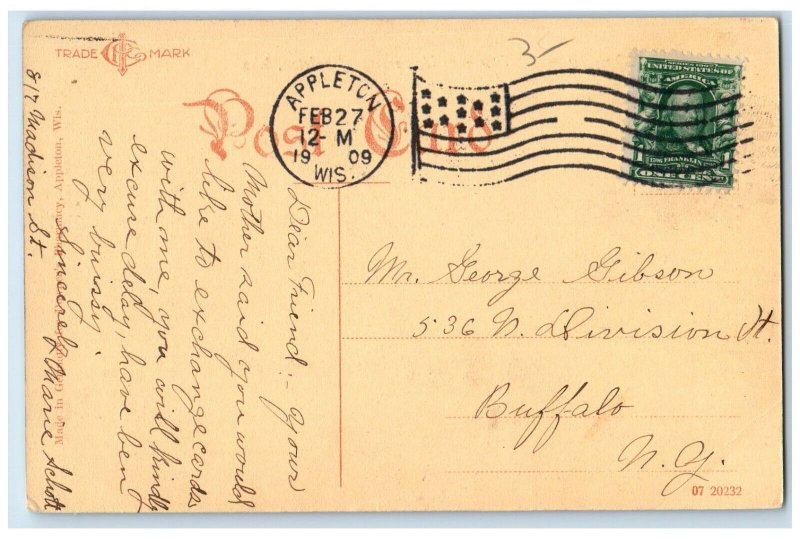 TRADE MARK
Post Card
APPLETON
FEB 27
12- M
19 09
WIS.
3-
SERIES 1902
UNITED STATES OF
AMERICA
FRANKLIN
1 1
ONE CENT
Dear Friend:- Your
Mother said you would
like to exchange cards
with me, you will kindly
excuse delay, have ben
very buissy.
Sincerely
Marie Schott
817 Madison St.
Mr. George Gibson
536 N. Division St.
Buffalo
N.Y.
Made in
Appleton, Wis.
07 20232